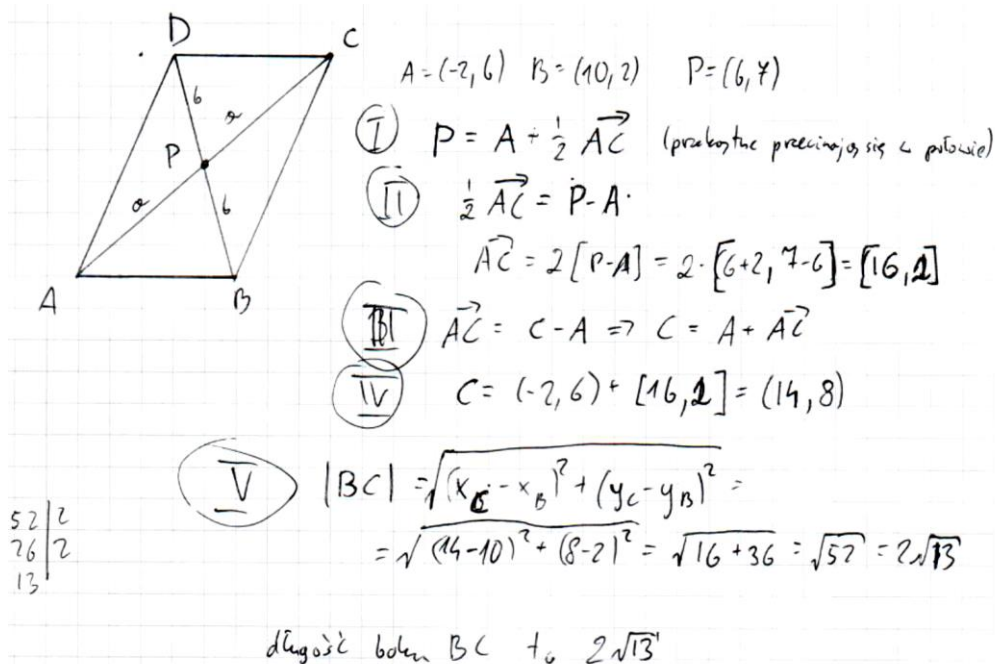 D
C
A = (-2, 6) B = (10, 2) P = (6, 7)
6
a
P
a
6
A
B
I P = A + ½ AC→ (przekątne przecinają się w połowie)
II ½ AC→ = P - A
AC→ = 2 [P-A] = 2 · [6+2, 7-6] = [16, 2]
III AC→ = C - A => C = A + AC→
IV C = (-2, 6) + [16, 2] = (14, 8)
V |BC| = √(x_C - x_B)² + (y_C - y_B)² =
= √(14-10)² + (8-2)² = √16 + 36 = √52 = 2√13
52 | 2
26 | 2
13 |
długość boku BC to 2√13